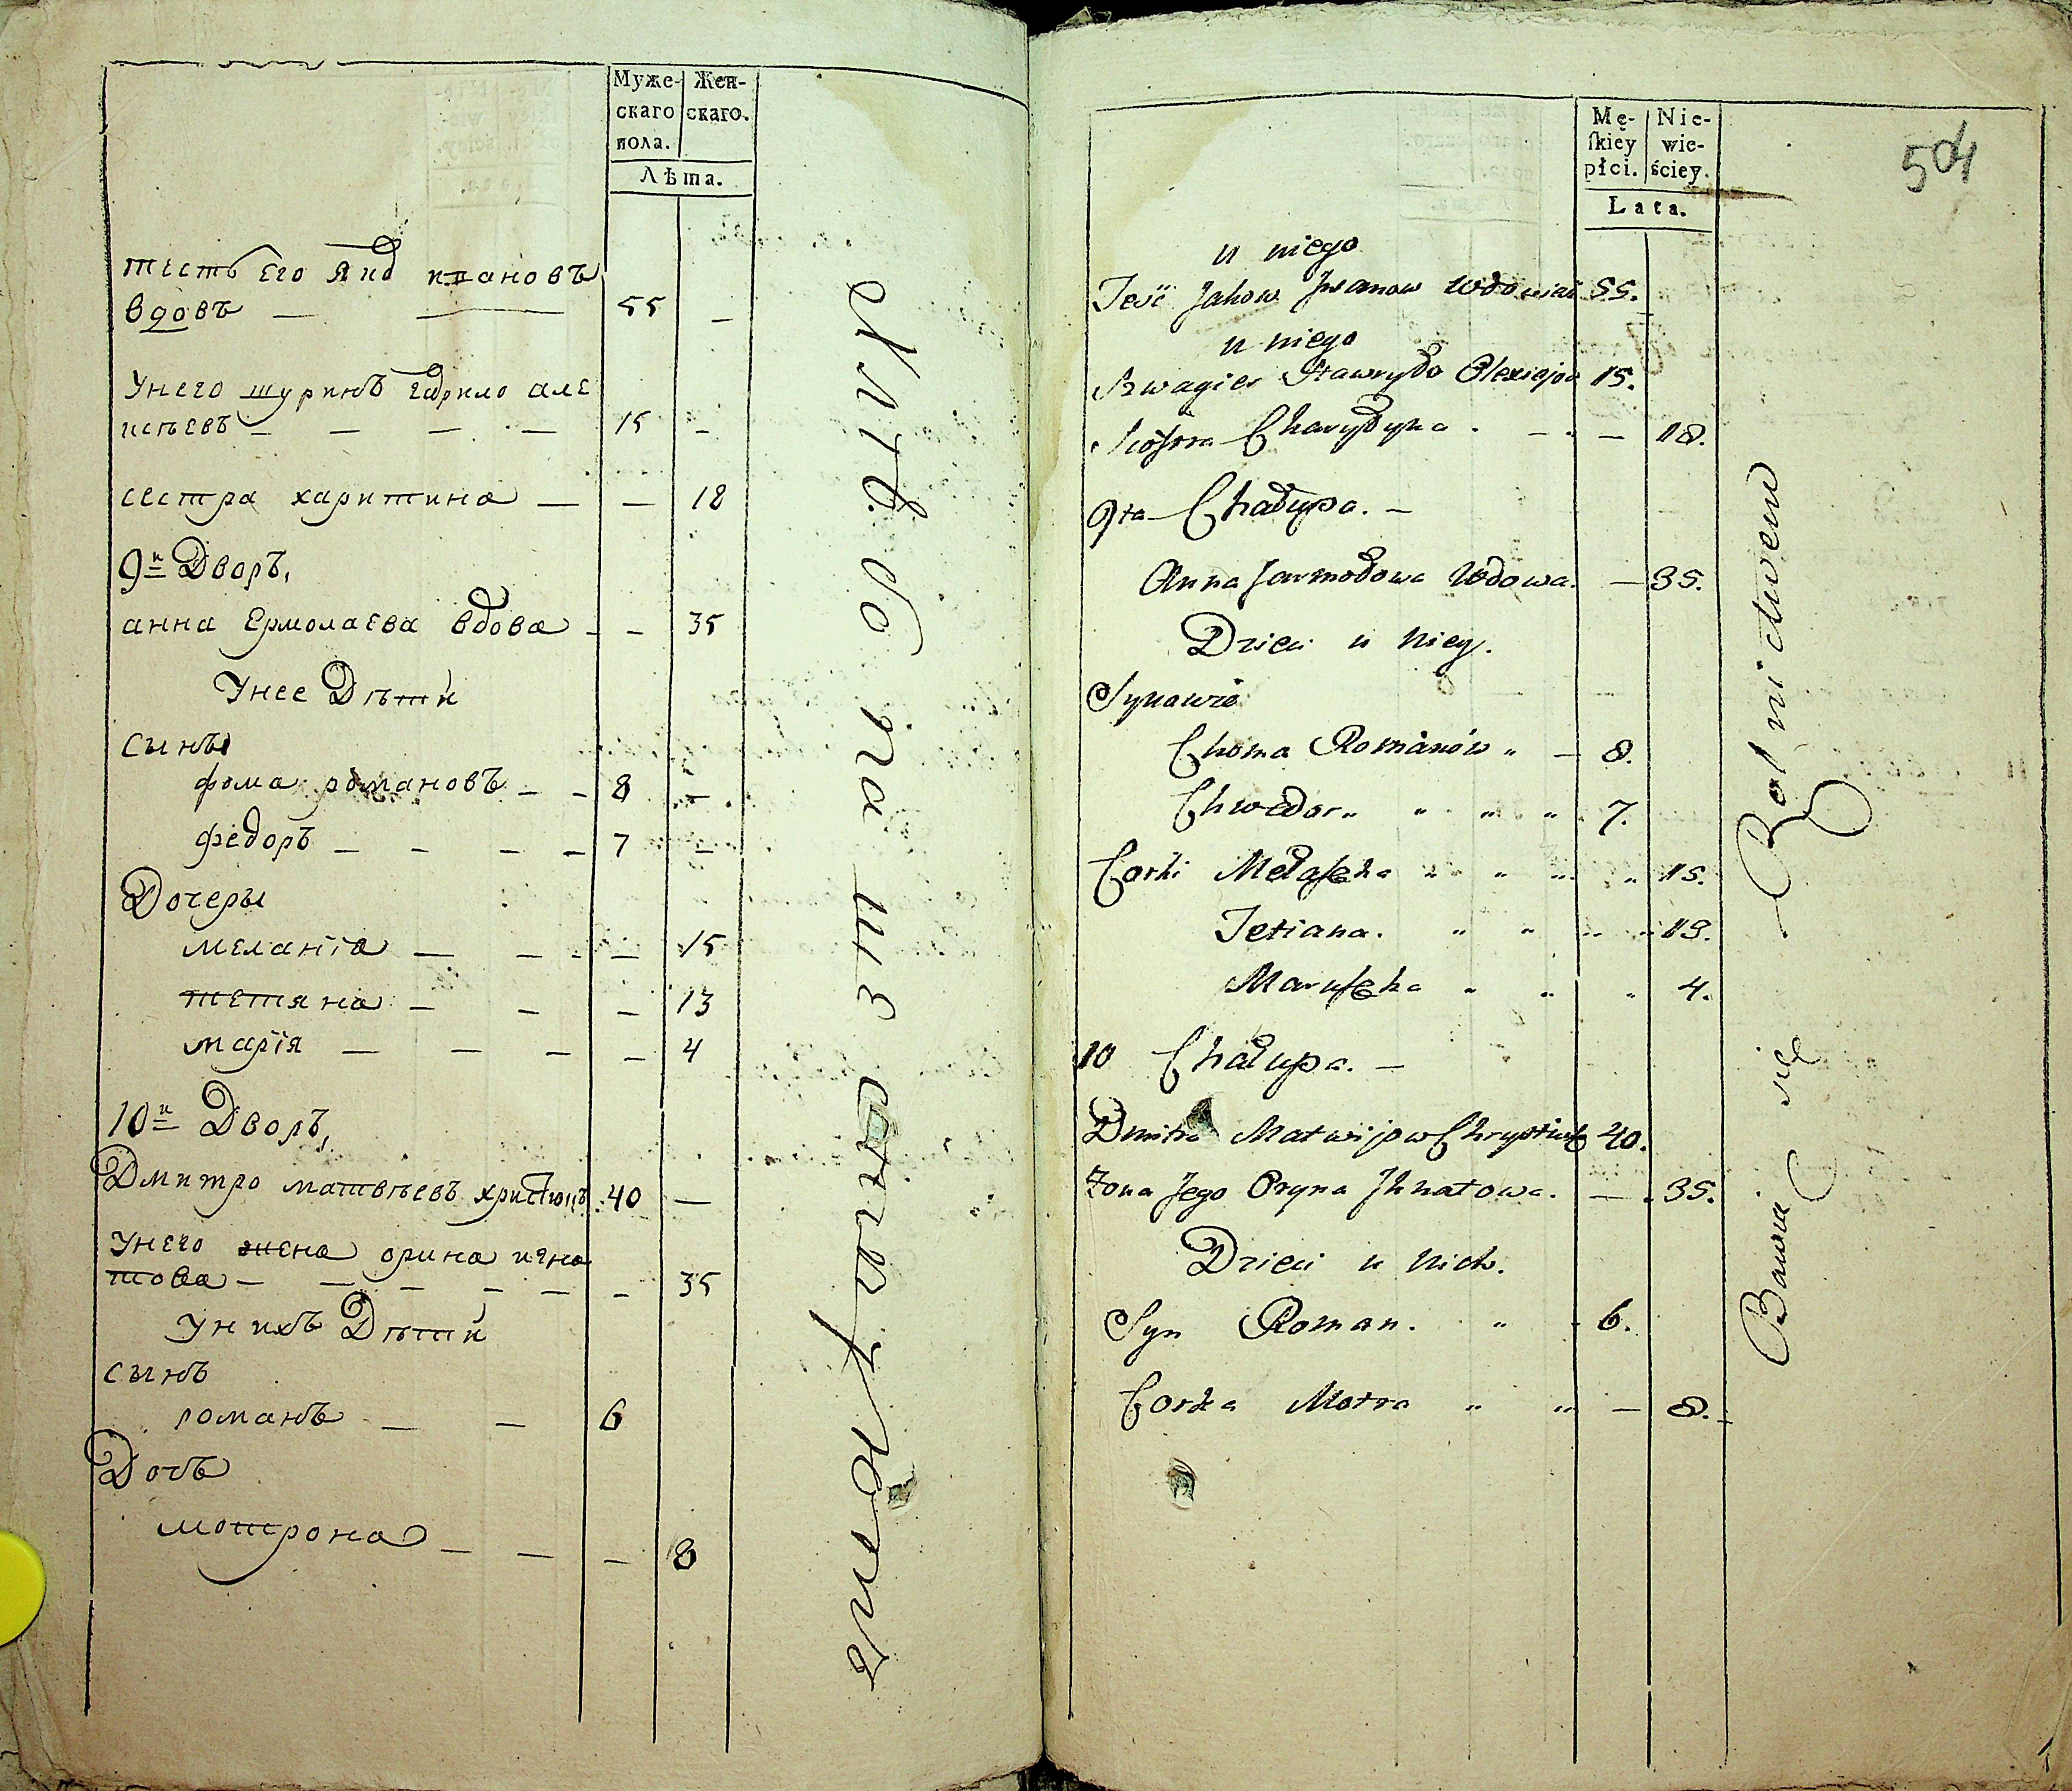 Муже-
скаго
пола.
Жен-
скаго.
Лѣта.
тесть Его Яко Ивановъ
вдовъ — — 55 —
Унего шуринъ гаврило але
исѣевъ — — — — 15 —
сестра харитина — — 18
9й Дворъ,
анна Ермолаева вдова - - 35
Унее Дѣти
сынъы
фома романовъ - - 8 -
федоръ - - - - 7 -
Дочеры
меланїа — - - - 15
тетяна - - - 13
марїя — — - - 4
10й Дворъ,
Дмитро матвѣевъ христюкъ 40 —
Унего жена орина игна
това — — - - - - 35
Унихъ Дѣти
сынъ
романъ — — 6
Дочъ
мотрона - — — 8
Хлѣбопашествомъ
Mę-
ſkiey
płci.
Nie-
wie-
ściey.
Lata.
504
u niego
Teść Jakow Iwanow Wdowiec 55.
u niego
Szwagier Hawryło Olexiejow 15.
Siostra Charytyna . - . — 18.
9ta Chałupa. -
Anna Jarmołowa Wdowa. — 35.
Dzieci u Niey.
Synowie
Choma Romanów „ — 8.
Chwedor „ „ „ „ 7.
Corki Mełaſzka „ „ „ „ 15.
Tetiana. „ „ „ „ 13.
Maruſzka „ „ „ 4.
10 Chałupa. —
Dmitro Matwijow Chrystiuk 40.
Żona Jego Oryna Ihnatowa. — 35.
Dzieci u Nich.
Syn Roman. „ 6.
Corka Motra „ „ — 8.
Bawią się Rolnictwem